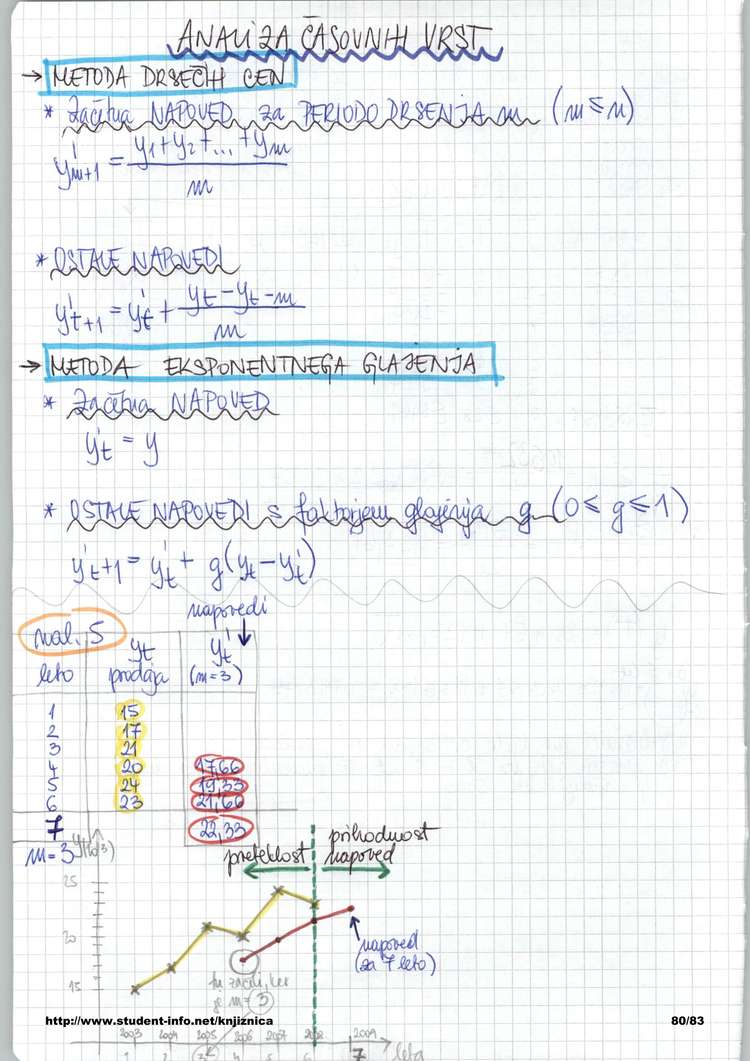 ANALIZA ČASOVNIH VRST
→ METODA DRSEČIH CEN
* Začetna NAPOVED za PERIODO DRSENJA m (m ≤ n)
y'm+1 = y1+y2+...+ym / m
* OSTALE NAPOVEDI
y't+1 = y't + yt - yt-m / m
→ METODA EKSPONENTNEGA GLAJENJA
* Začetna NAPOVED
y't = y
* OSTALE NAPOVEDI s faktorjem glajenja g (0 ≤ g ≤ 1)
y't+1 = y't + g(yt - y't)
napovedi
nal. 5 yt y't
leto prodaja (m=3)
1 15
2 17
3 21
4 20 17,66
5 24 19,33
6 23 21,66
7 22,33
m=3
preteklost prihodnost
napoved
25
20
15
napoved
(za 7 leto)
tu začni, ker
je m=3
http://www.student-info.net/knjiznica 80/83
2003 2004 2005 2006 2007 2008 2009
1 2 3 4 5 6 7 leta